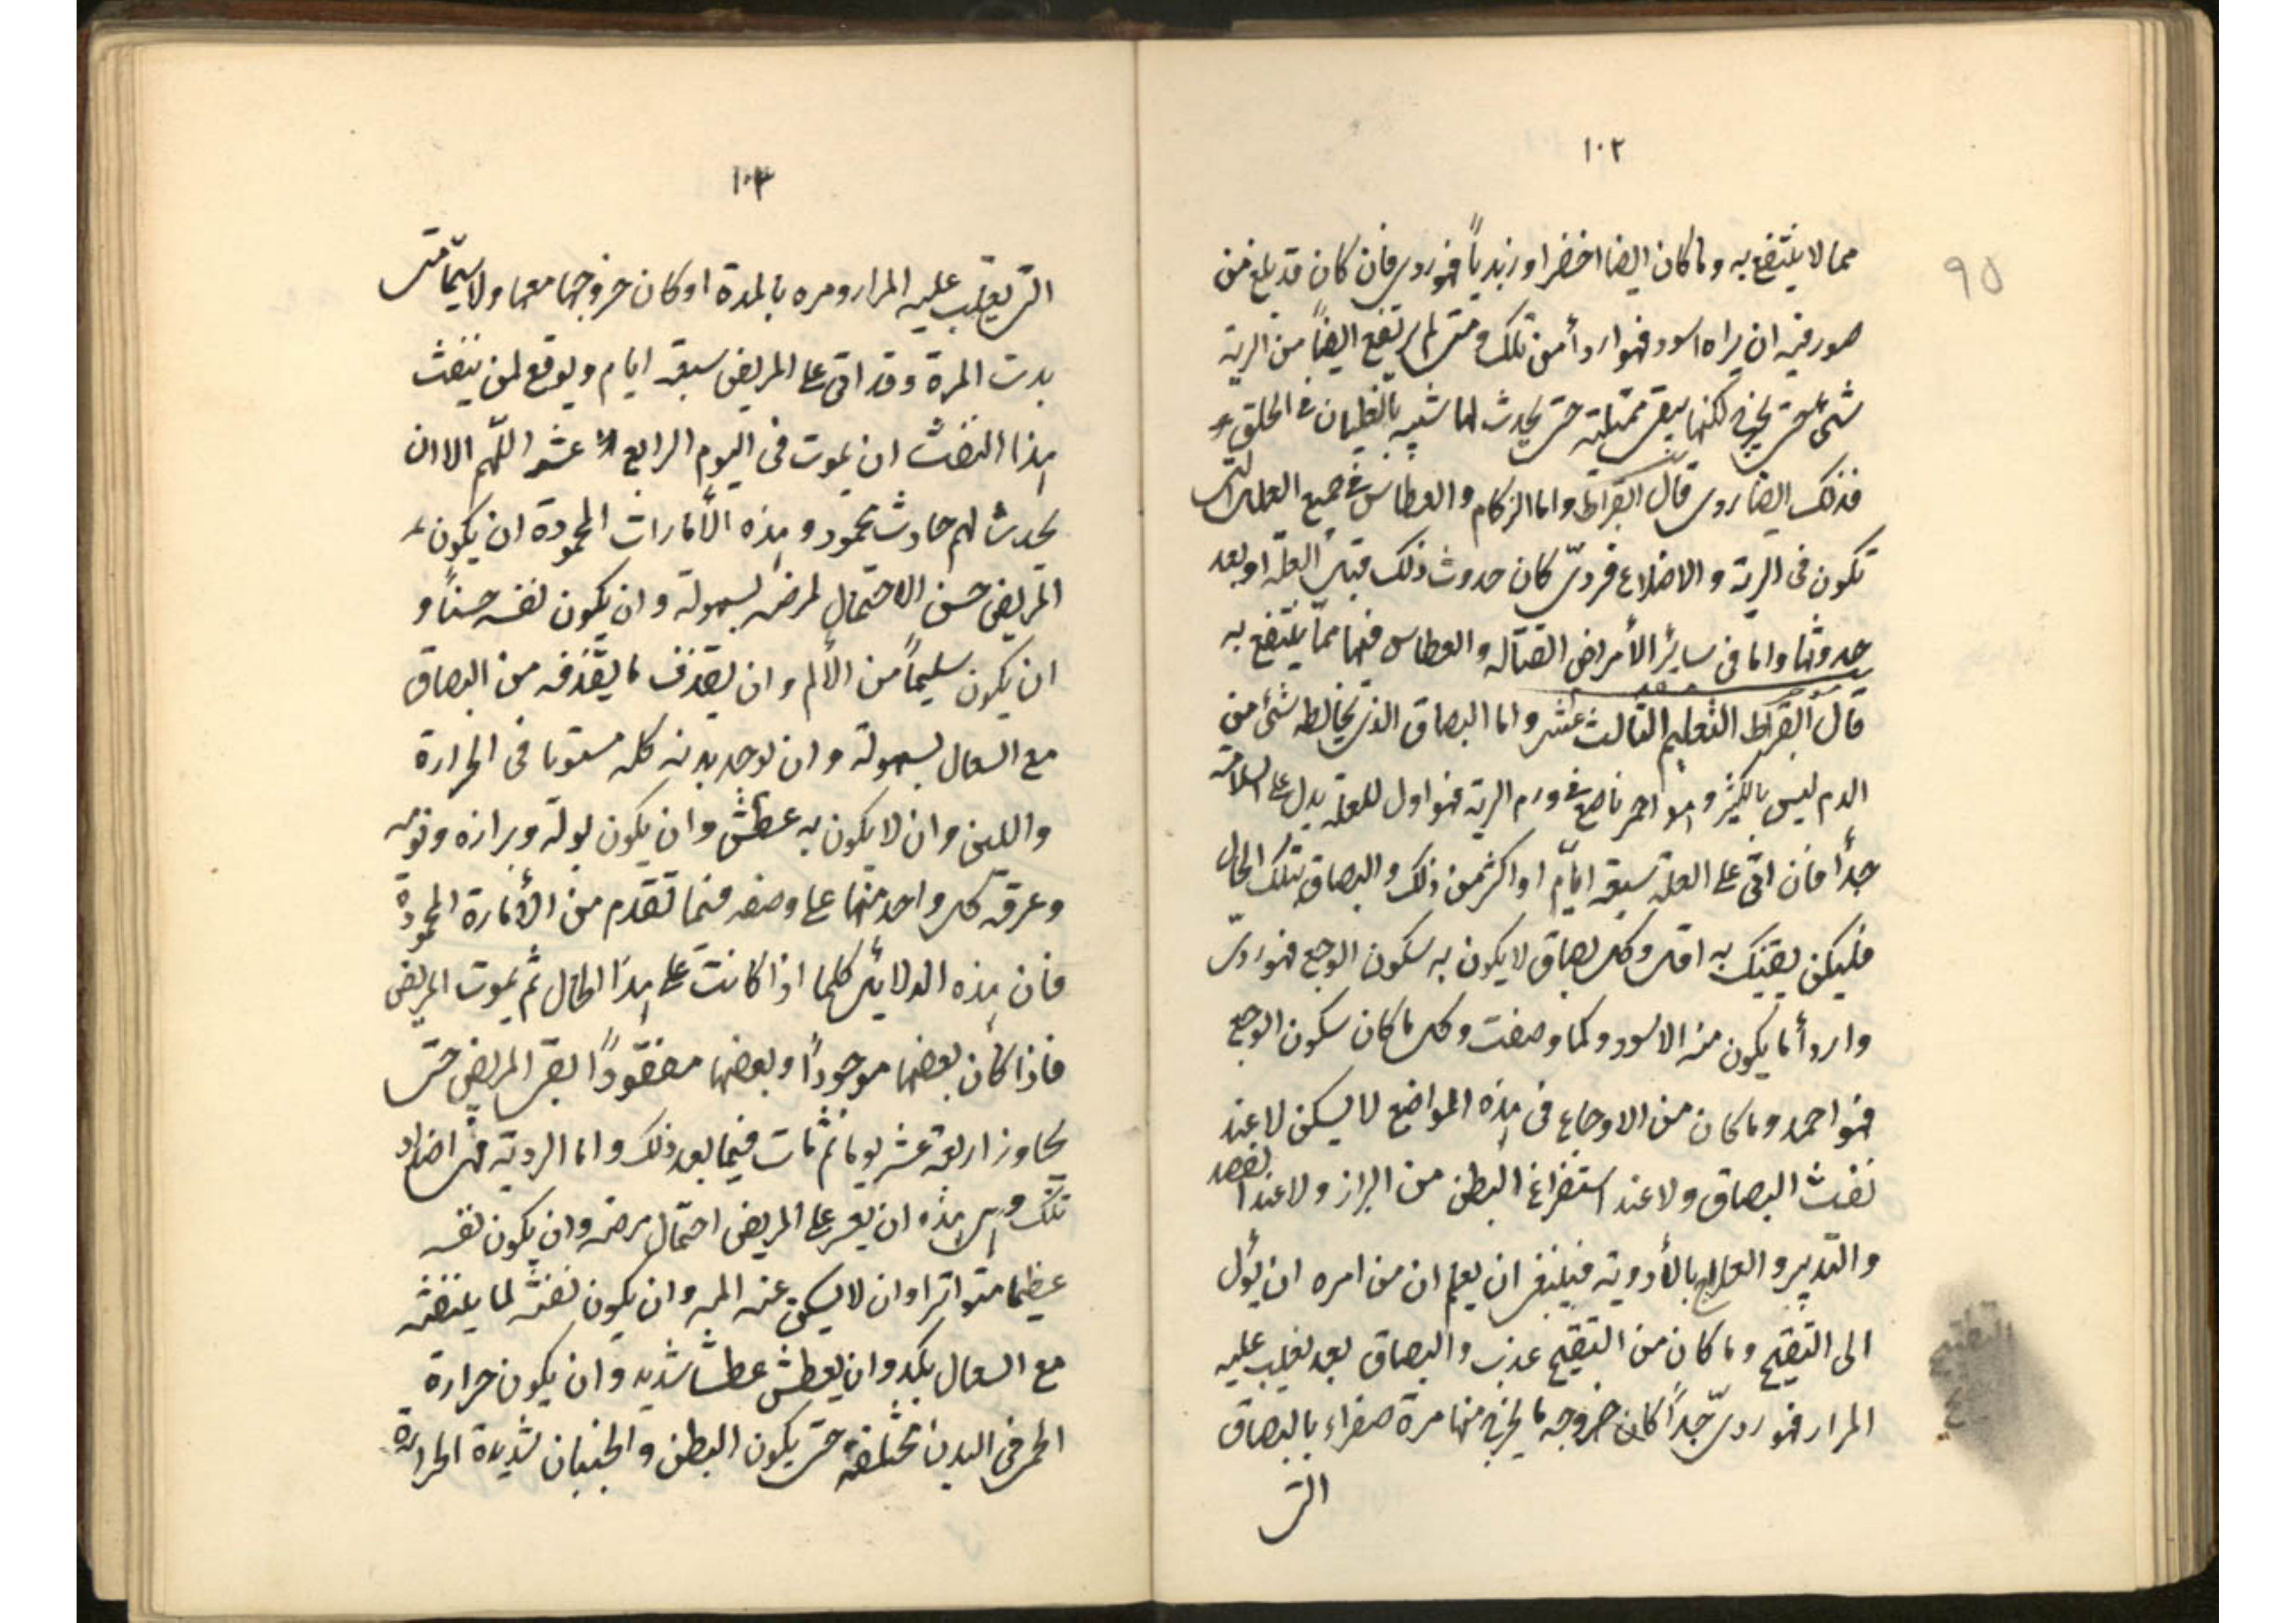 ١٠٢
٩٥
مما لا ينتفع به وما كان ايضا اخضر او زبدياً فهو ردى فان كان قد بلغ من
صورفيه ان يراه اسود فهو اردأ من تلك ومتى لم يرتفع ايضاً من الرية
شىء حتى يخرج لكنها يبقى ممتلية حتى يحدث لها شبيه بالغليان فى الحلق
فذلك ايضا ردى قال ابقراط واما الزكام والعطاس فى جميع العلل التى
تكون فى الرية والاضلاع فردىّ كان حدوث ذلك قبل العلّة او بعد
حدوثها واما فى سائر الأمراض القتاله والعطاس فيها مما ينتفع به
قال ابقراط التعليم الثالث عشر واما البصاق الذى يخالطه شئ من
الدم ليس بالكثير وهو احمر ناصع فى ورم الرية فهو اول للعلة يدل على السلامة
جداً فان اتى على العلة سبعة ايّام او اكثر من ذلك والبصاق بتلك الحال
فليكن يقينك به اقل وكل بصاق لا يكون به سكون الوجع فهو ردىّ
واردأ ما يكون منه الاسود وكما وصفت وكل ما كان سكون الوجع
فهو احمد وما كان من الاوجاع فى هذه المواضع لا يسكن لا عند
نفث البصاق ولا عند استفراغ البطن من البراز ولا عند الفصد
والتدبير والعلاج بالأدوية فينبغى ان يعلم ان من امره ان يؤل
الى التقيح وما كان من التقيح عذب والبصاق بعد يغلب عليه
المرار فهو ردىّ جداً كان خروجه ما يخرج منها مرة صفراء بالبصاق
التى
١٠٣
التى يغلب عليه المرار ومره بالمدة او كان خروجها معها ولا سيّما متى
بدت المرة وقد اتى على المريض سبعة ايام ويوقع لمن ينفث
هذا النفث ان يموت فى اليوم الرابع عشر اللّهم الا ان
يحدث لهم حادث محمود وهذه الأمارات المحمودة ان يكون
المريض حسن الاحتمال لمرضه بسهولة وان يكون نفسه حسناً و
ان يكون سليماً من الألم وان يقذف ما يقذفه من البصاق
مع السعال بسهولة وان يوجد بدنه كله مستويا فى الحرارة
واللين وان لا يكون به عطش وان يكون بوله وبرازه ونومه
وعرقه كل واحد منها على وصفه فيما تقدم من الأمارة المحمودة
فان هذه الدلائل كلها اذا كانت على هذا الحال ثم يموت المريض
فاذا كان بعضها موجوداً وبعضها مفقوداً بقى المريض حتى
يجاوز اربعة عشر يوما ثم مات فيما بعد ذلك واما الردية فهى اضداد
تلك وهى هذه ان يعسر على المريض احتمال مرضه وان يكون نفسه
عظيما متواترا وان لا يسكن عنه المه وان يكون نفثه لما ينفثه
مع السعال بكد وان يعطش عطشا شديد وان يكون حرارة
الحمى فى البدن مختلفة حتى يكون البطن والجنبان شديدة الحرارة